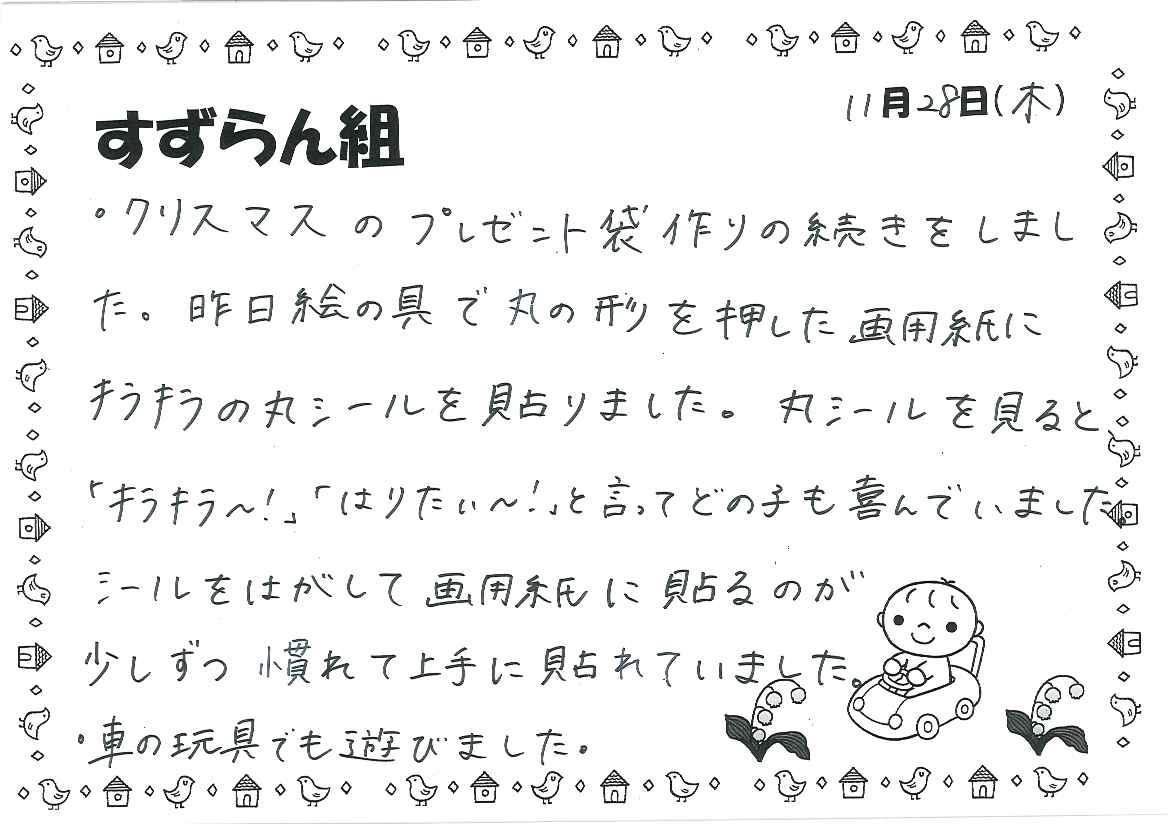 すずらん組
11月28日(木)
・クリスマスのプレゼント袋作りの続きをしまし
た。昨日絵の具で丸の形を押した画用紙に
キラキラの丸シールを貼りました。丸シールを見ると、
「キラキラ〜!」「はりたぃ〜!」と言ってどの子も喜んでいました。
シールをはがして画用紙に貼るのが
少しずつ慣れて上手に貼れていました。
・車の玩具でも遊びました。